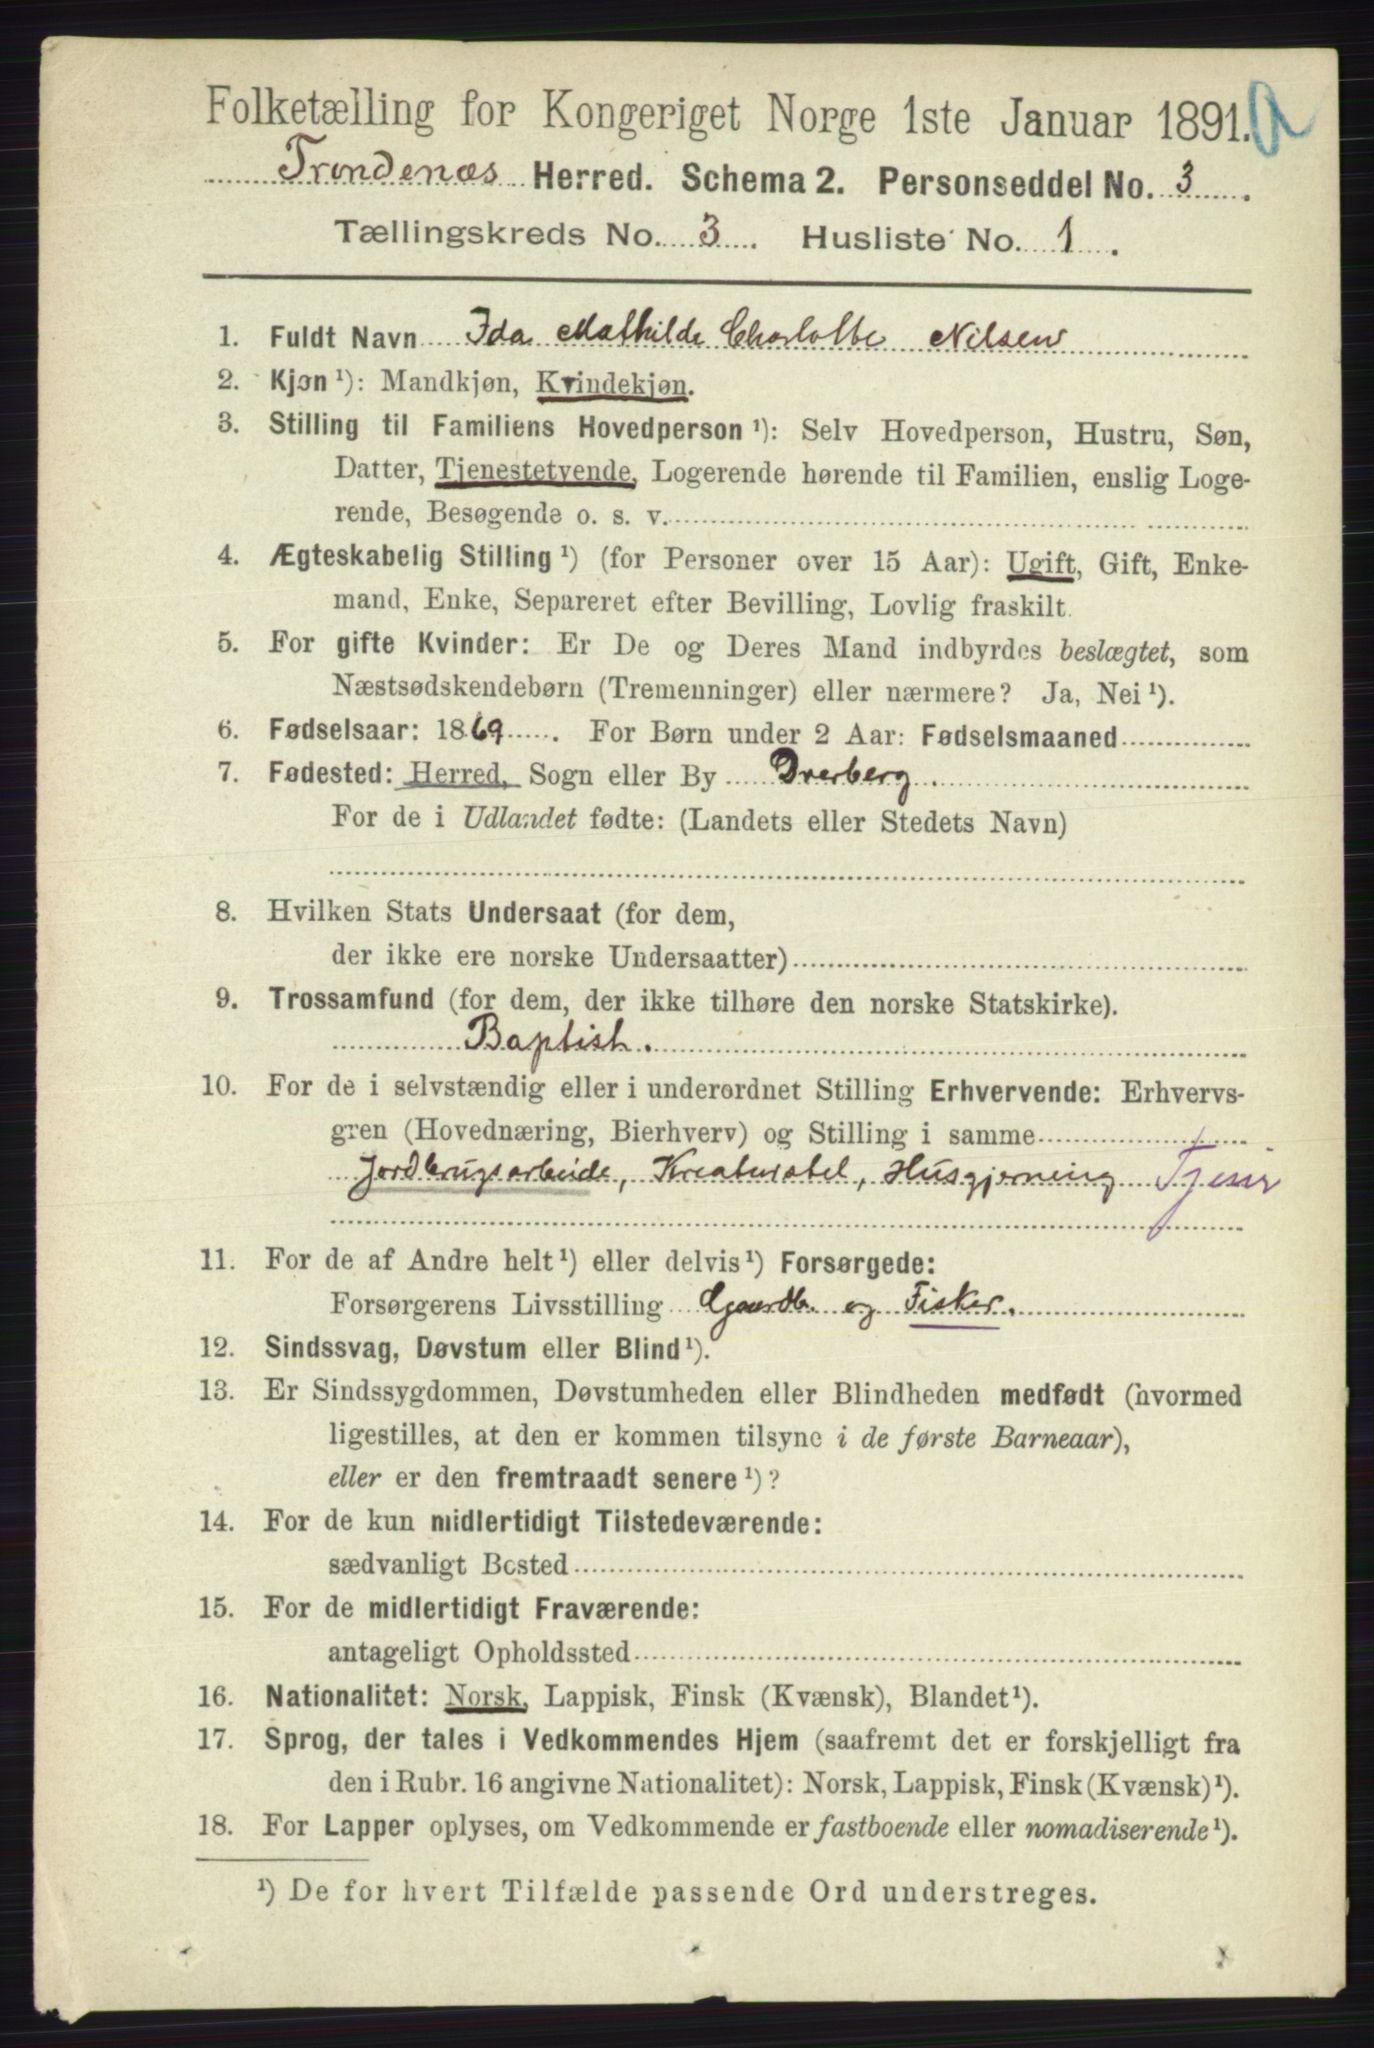 Folketælling for Kongeriget Norge 1ste Januar 1891. a
Trondenæs Herred. Schema 2. Personseddel No. 3.
Tællingskreds No. 3. Husliste No. 1.
1. Fuldt Navn Ida Mathilde Charlotte Nilsen
2. Kjøn ¹): Mandkjøn, Kvindekjøn.
3. Stilling til Familiens Hovedperson ¹): Selv Hovedperson, Hustru, Søn,
Datter, Tjenestetyende, Logerende hørende til Familien, enslig Loge-
rende, Besøgende o. s. v.
4. Ægteskabelig Stilling ¹) (for Personer over 15 Aar): Ugift, Gift, Enke-
mand, Enke, Separeret efter Bevilling, Lovlig fraskilt.
5. For gifte Kvinder: Er De og Deres Mand indbyrdes beslægtet, som
Næstsødskendebørn (Tremenninger) eller nærmere? Ja, Nei ¹).
6. Fødselsaar: 1869. For Børn under 2 Aar: Fødselsmaaned
7. Fødested: Herred, Sogn eller By Dverberg.
For de i Udlandet fødte: (Landets eller Stedets Navn)
8. Hvilken Stats Undersaat (for dem,
der ikke ere norske Undersaatter)
9. Trossamfund (for dem, der ikke tilhøre den norske Statskirke).
Baptist.
10. For de i selvstændig eller i underordnet Stilling Erhvervende: Erhvervs-
gren (Hovednæring, Bierhverv) og Stilling i samme
Jordbrugsarbeide, Kreaturstel, Husgjerning Tjener
11. For de af Andre helt ¹) eller delvis ¹) Forsørgede:
Forsørgerens Livsstilling Gaardb. og Fisker.
12. Sindssvag, Døvstum eller Blind ¹).
13. Er Sindssygdommen, Døvstumheden eller Blindheden medfødt (hvormed
ligestilles, at den er kommen tilsyne i de første Barneaar),
eller er den fremtraadt senere ¹)?
14. For de kun midlertidigt Tilstedeværende:
sædvanligt Bosted
15. For de midlertidigt Fraværende:
antageligt Opholdssted
16. Nationalitet: Norsk, Lappisk, Finsk (Kvænsk), Blandet ¹).
17. Sprog, der tales i Vedkommendes Hjem (saafremt det er forskjelligt fra
den i Rubr. 16 angivne Nationalitet): Norsk, Lappisk, Finsk (Kvænsk) ¹).
18. For Lapper oplyses, om Vedkommende er fastboende eller nomadiserende ¹).
¹) De for hvert Tilfælde passende Ord understreges.